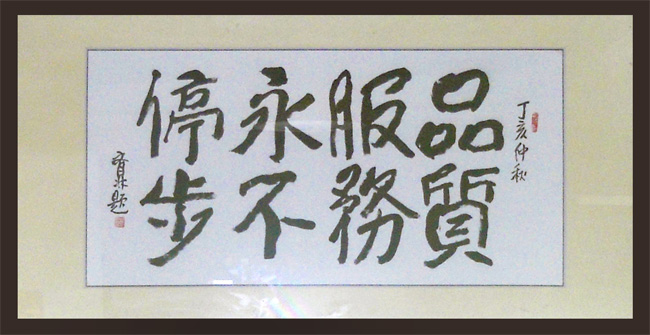 丁亥仲秋
品質
服務
永不
停步
題